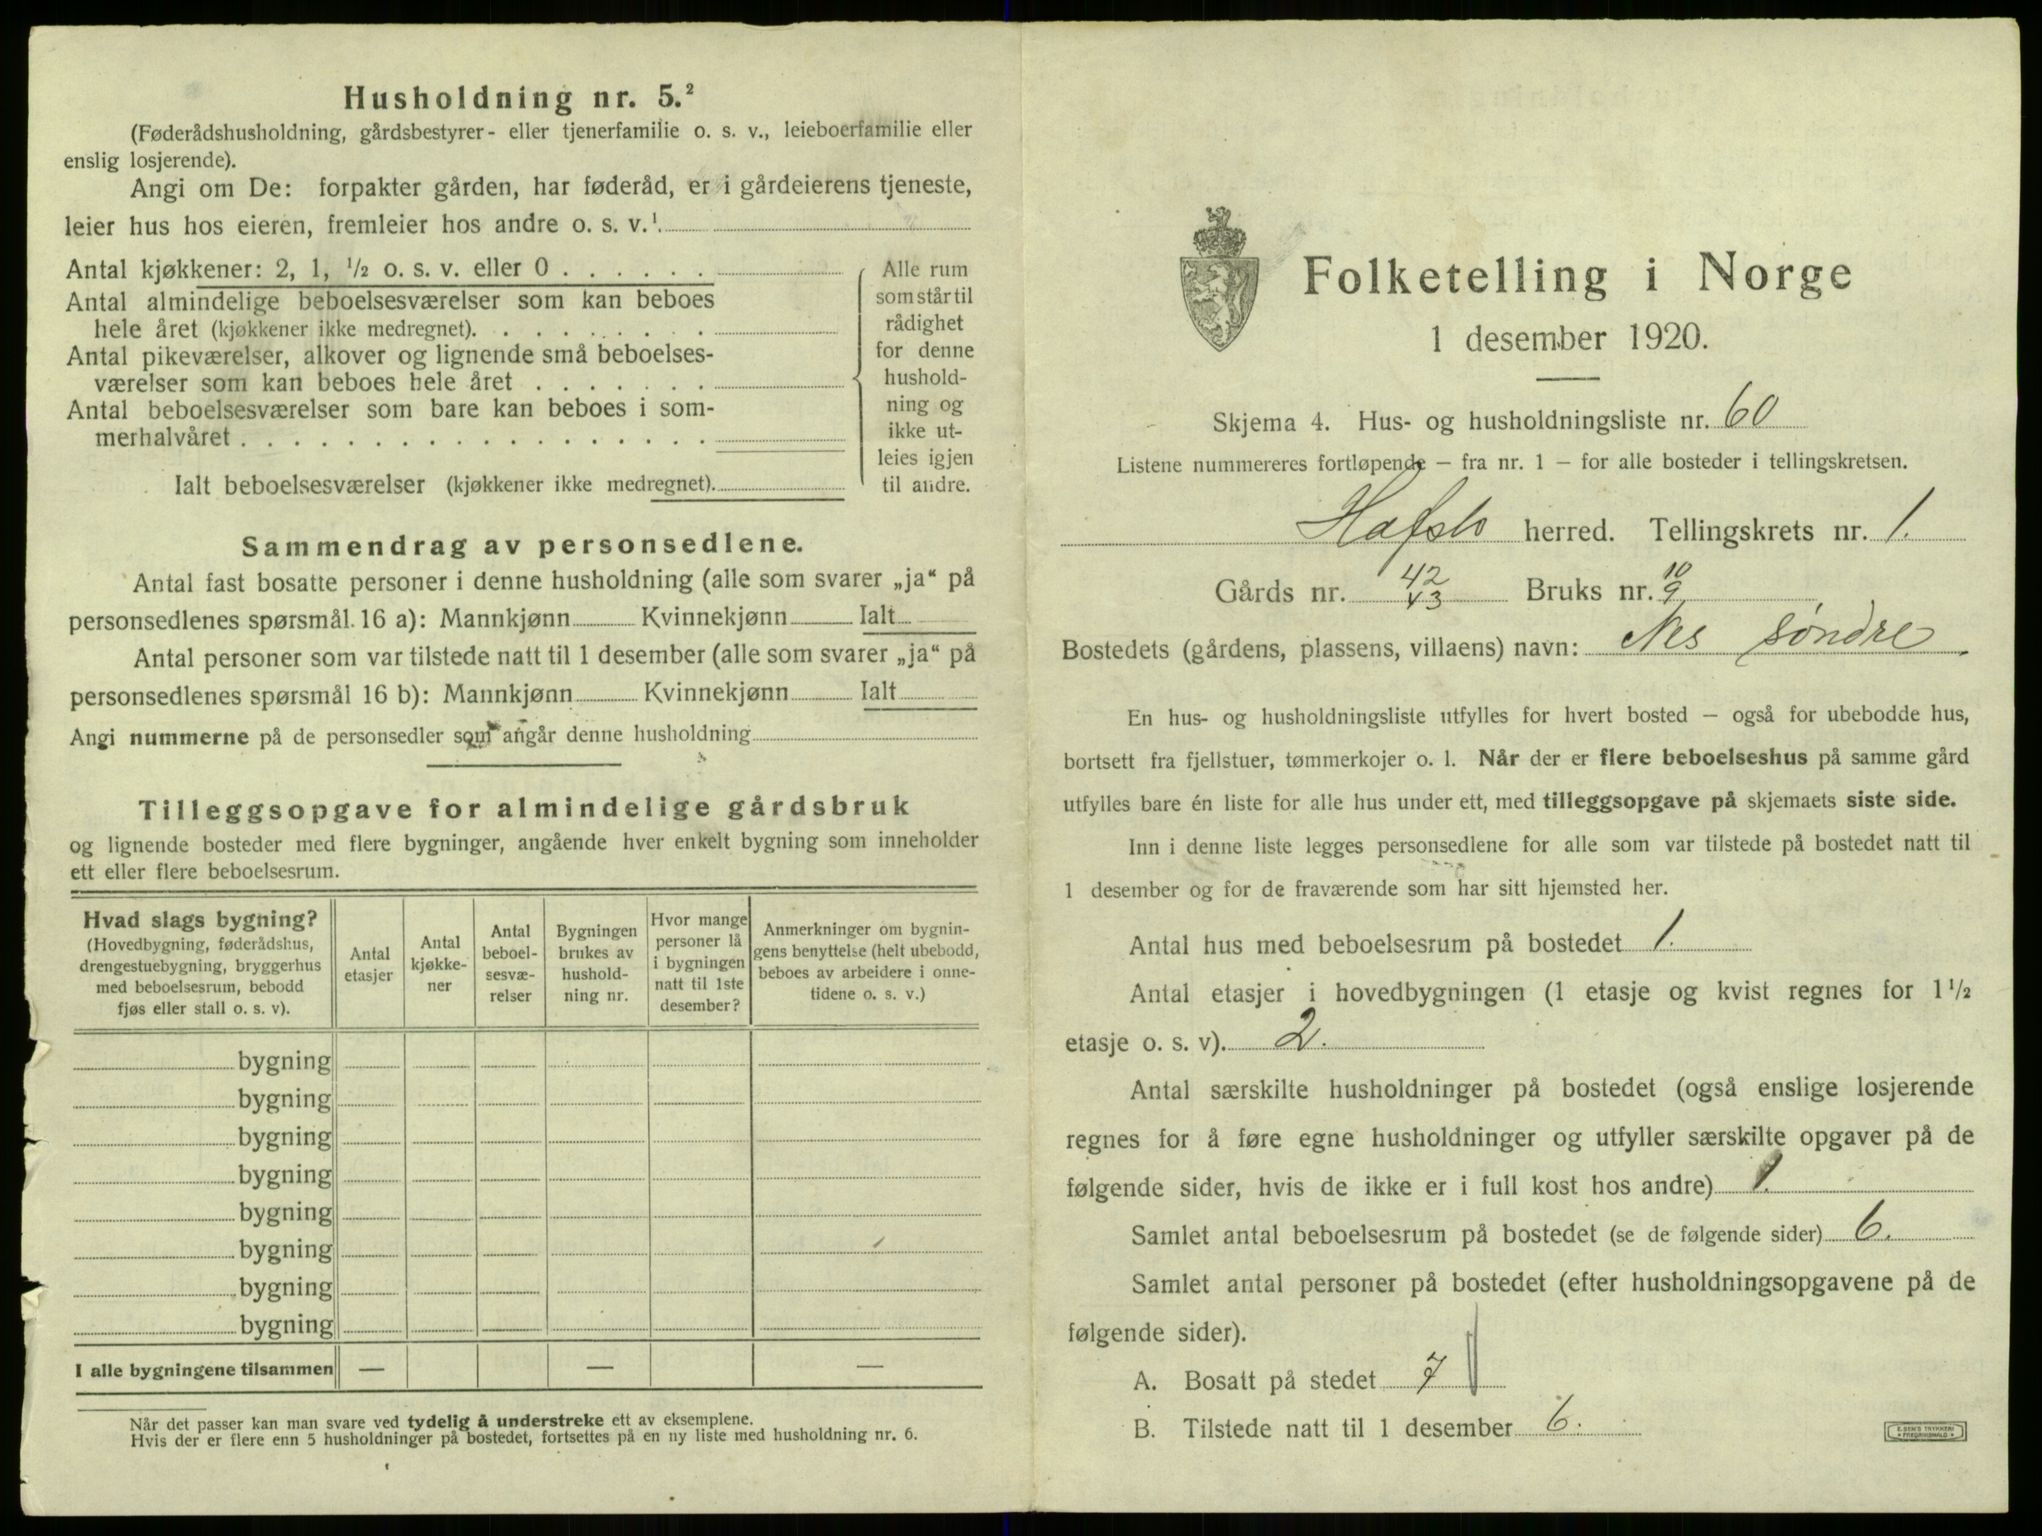 Husholdning nr. 5.²
(Føderådshusholdning, gårdsbestyrer- eller tjenerfamilie o. s. v., leieboerfamilie eller
enslig losjerende).
Angi om De: forpakter gården, har føderåd, er i gårdeierens tjeneste,
leier hus hos eieren, fremleier hos andre o. s. v.¹
Antal kjøkkener: 2, 1, ½ o. s. v. eller 0 . . . . . .
Antal almindelige beboelsesværelser som kan beboes
hele året (kjøkkener ikke medregnet). . . . . . . . .
Antal pikeværelser, alkover og lignende små beboelses-
værelser som kan beboes hele året . . . . . . .
Antal beboelsesværelser som bare kan beboes i som-
merhalvåret . . . . . . . . . . . . . . . . . .
Ialt beboelsesværelser (kjøkkener ikke medregnet).
Alle rum
som står til
rådighet
for denne
hushold-
ning og
ikke ut-
leies igjen
til andre.
Sammendrag av personsedlene.
Antal fast bosatte personer i denne husholdning (alle som svarer „ja“ på
personsedlenes spørsmål 16 a): Mannkjønn Kvinnekjønn Ialt
Antal personer som var tilstede natt til 1 desember (alle som svarer „ja“ på
personsedlenes spørsmål 16 b): Mannkjønn Kvinnekjønn Ialt
Angi nummerne på de personsedler som angår denne husholdning
Tilleggsopgave for almindelige gårdsbruk
og lignende bosteder med flere bygninger, angående hver enkelt bygning som inneholder
ett eller flere beboelsesrum.
Hvad slags bygning?
(Hovedbygning, føderådshus,
drengestuebygning, bryggerhus
med beboelsesrum, bebodd
fjøs eller stall o. s. v).
Antal
etasjer
Antal
kjøkke-
ner
Antal
beboel-
sesvæ-
relser
Bygningen
brukes av
hushold-
ning nr.
Hvor mange
personer lå
i bygningen
natt til 1ste
desember?
Anmerkninger om bygnin-
gens benyttelse (helt ubebodd,
beboes av arbeidere i onne-
tidene o. s. v.)
bygning
bygning
bygning
bygning
bygning
bygning
bygning
bygning
I alle bygningene tilsammen — — —
Når det passer kan man svare ved tydelig å understreke ett av eksemplene.
Hvis der er flere enn 5 husholdninger på bostedet, fortsettes på en ny liste med husholdning nr. 6.
Folketelling i Norge
1 desember 1920.
Skjema 4. Hus- og husholdningsliste nr. 60
Listene nummereres fortløpende — fra nr. 1 — for alle bosteder i tellingskretsen.
Hafslo herred. Tellingskrets nr. 1.
Gårds nr. 42 43 Bruks nr. 10 9
Bostedets (gårdens, plassens, villaens) navn: Nes søndre.
En hus- og husholdningsliste utfylles for hvert bosted — også for ubebodde hus,
bortsett fra fjellstuer, tømmerkojer o. l. Når der er flere beboelseshus på samme gård
utfylles bare én liste for alle hus under ett, med tilleggsopgave på skjemaets siste side.
Inn i denne liste legges personsedlene for alle som var tilstede på bostedet natt til
1 desember og for de fraværende som har sitt hjemsted her.
Antal hus med beboelsesrum på bostedet 1.
Antal etasjer i hovedbygningen (1 etasje og kvist regnes for 1½
etasje o. s. v). 2.
Antal særskilte husholdninger på bostedet (også enslige losjerende
regnes for å føre egne husholdninger og utfyller særskilte opgaver på de
følgende sider, hvis de ikke er i full kost hos andre) 1.
Samlet antal beboelsesrum på bostedet (se de følgende sider) 6.
Samlet antal personer på bostedet (efter husholdningsopgavene på de
følgende sider).
A. Bosatt på stedet 7
B. Tilstede natt til 1 desember 6.
E. SEM'S TRYKKERI
FREDRIKSHALD